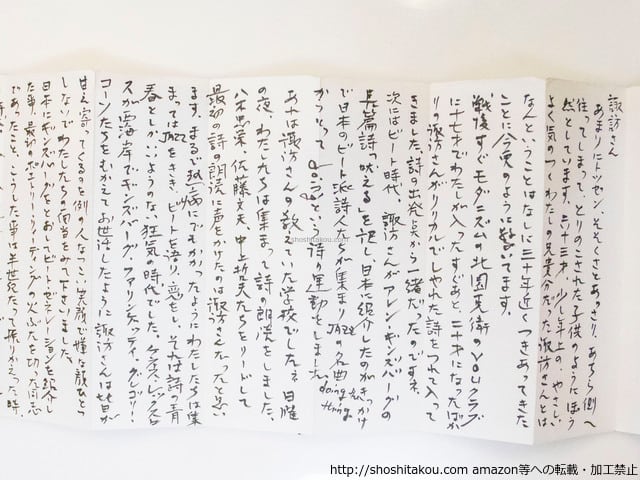 諏訪さん
あまりにトツゼン、そそくさとあっさり、あちら側へ
往ってしまって、とりのこされた子供のようにぼう
然としています。六十三才、少し年上の、やさしい
よく気のつくわたしの兄貴分だった諏訪さんとは
なんということはなしに三十年近くつきあってきた
ことに今更のように驚いてます。
戦後すぐモダニズムの北園克衛のVOUクラブ
に十七才でわたしが入ったすぐあと、二十才になったばか
りの諏訪さんがリリカルでしゃれた詩をつれて入って
きました。詩の出発点から一緒だったのですネ。
次にはビート時代、諏訪さんがアレン・ギンズバーグの
長篇詩「吠える」を訳し、日本に紹介したのがきっかけ
で日本のビート派詩人たちが集まり、JAZZの名曲
doing the thing
かつぐって、Doingという詩の運動をしました。
あれは諏訪さんの教えていた学校でした?日曜
の夜、わたしたちは集まって詩の朗読をしました。
八木忠栄、佐藤文夫、中上哲夫たちをリードして
最初の詩の朗読に声をかけたのは諏訪さんだったと思い
ます。まるで熱病にでもかかったようにわたしたちは集
まってはJAZZをきき、ビートを語り、恋をし、それは詩の青
春としかいいようのない狂気の時代でした。ケネス・レックスロ
スが西海岸でギンズバーグ、ファリンゲッティ、グレゴリー・
コーソたちをむかえてお世話したように諏訪さんは皆が
甘え寄ってくるのを例の人なつこい笑顔で嫌な顔ひとつ
しないでわたしたちの面倒をみて下さいました。
日本にギンズバーグをとおしてビート・ゼネレーションを紹介し
た事、最初のポエトリー・リーディングの火ぶたを切った同志
であったこと、こうした事は半世紀たって振りかえった時、
shoshitakou.com
http://shoshitakou.com amazon等への転載・加工禁止